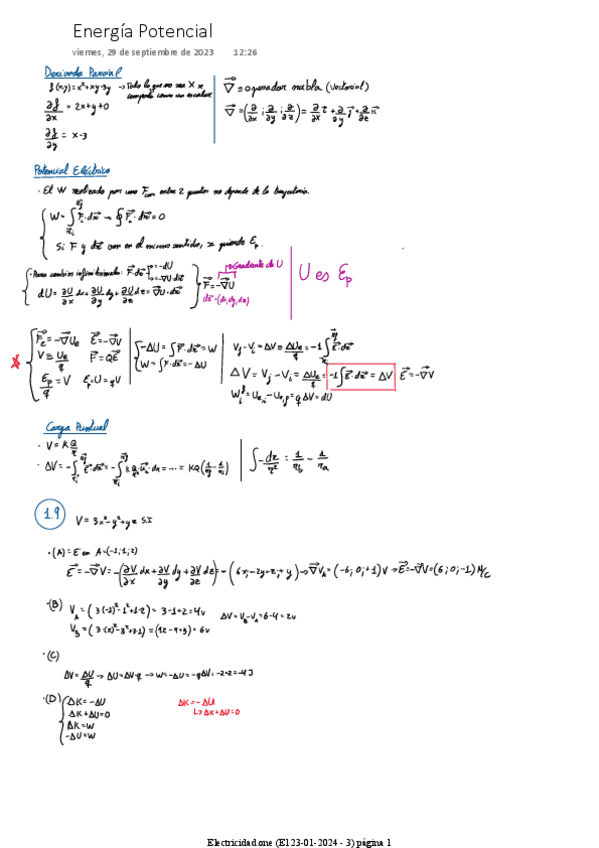 Energía Potencial
viernes, 29 de septiembre de 2023 12:26
Derivada Parcial
f(x,y)=x²+xy-3y → Todo lo que no sea X se
comporta como un escalar
∂f/∂x = 2x+y+0
∂f/∂y = x-3
∇⃗ ≡ operador nabla (vectorial)
∇⃗ = (∂/∂x ; ∂/∂y ; ∂/∂z) = ∂/∂x i⃗ + ∂/∂y j⃗ + ∂/∂z k⃗
Potencial Eléctrico
· El W realizado por una F entre 2 puntos no depende de la trayectoria.
Si F y van en el mismo sentido, se pierde Ep.
· Para cambios infinitesimales: = -dU
dU = ∂U/∂x dx + ∂U/∂y dy + ∂U/∂z dz = ∇⃗U·
Gradiente de U
F⃗ = -∇⃗U
(dx, dy, dz)
U es Ep
F⃗e = -∇⃗Ue E⃗ = -∇⃗V
V ≡ Ue/q F⃗ = QE⃗
Ep/q = V Ep = U = qV
-ΔU = = W
W = = -ΔU
ΔV = Vj - Vi = ΔUe/q = = ΔV E⃗ = -∇⃗V
= q ΔV = dU
Carga Puntual
· V = K Q/r
1.9
V = 3x²-y²+yz S.I
· (A) = E en A = (-1;1;2)
E⃗ = -∇⃗V = -(∂V/∂x dx + ∂V/∂y dy + ∂V/∂z dz) = -(6x; -2y+z; +y) → ∇⃗VA = (-6; 0; +1) V → E⃗ = -∇⃗V = (6; 0; -1) N/C
· (B) VA = (3(-1)²-1²+1·2) = 3-1+2 = 4V ΔV = VB-VA = 6-4 = 2V
VB = (3·(2)²-3²+3·1) = (12-9+3) = 6V
· (C)
ΔV = ΔU/q → ΔU = ΔV·q → W = -ΔU = -qΔV = -2·2 = -4J
· (D) ΔK = -ΔU
ΔK + ΔU = 0
ΔK = W
-ΔU = W
ΔK = -ΔU
↳ ΔK + ΔU = 0
Electricidad.one (E123-01-2024 - 3) página 1